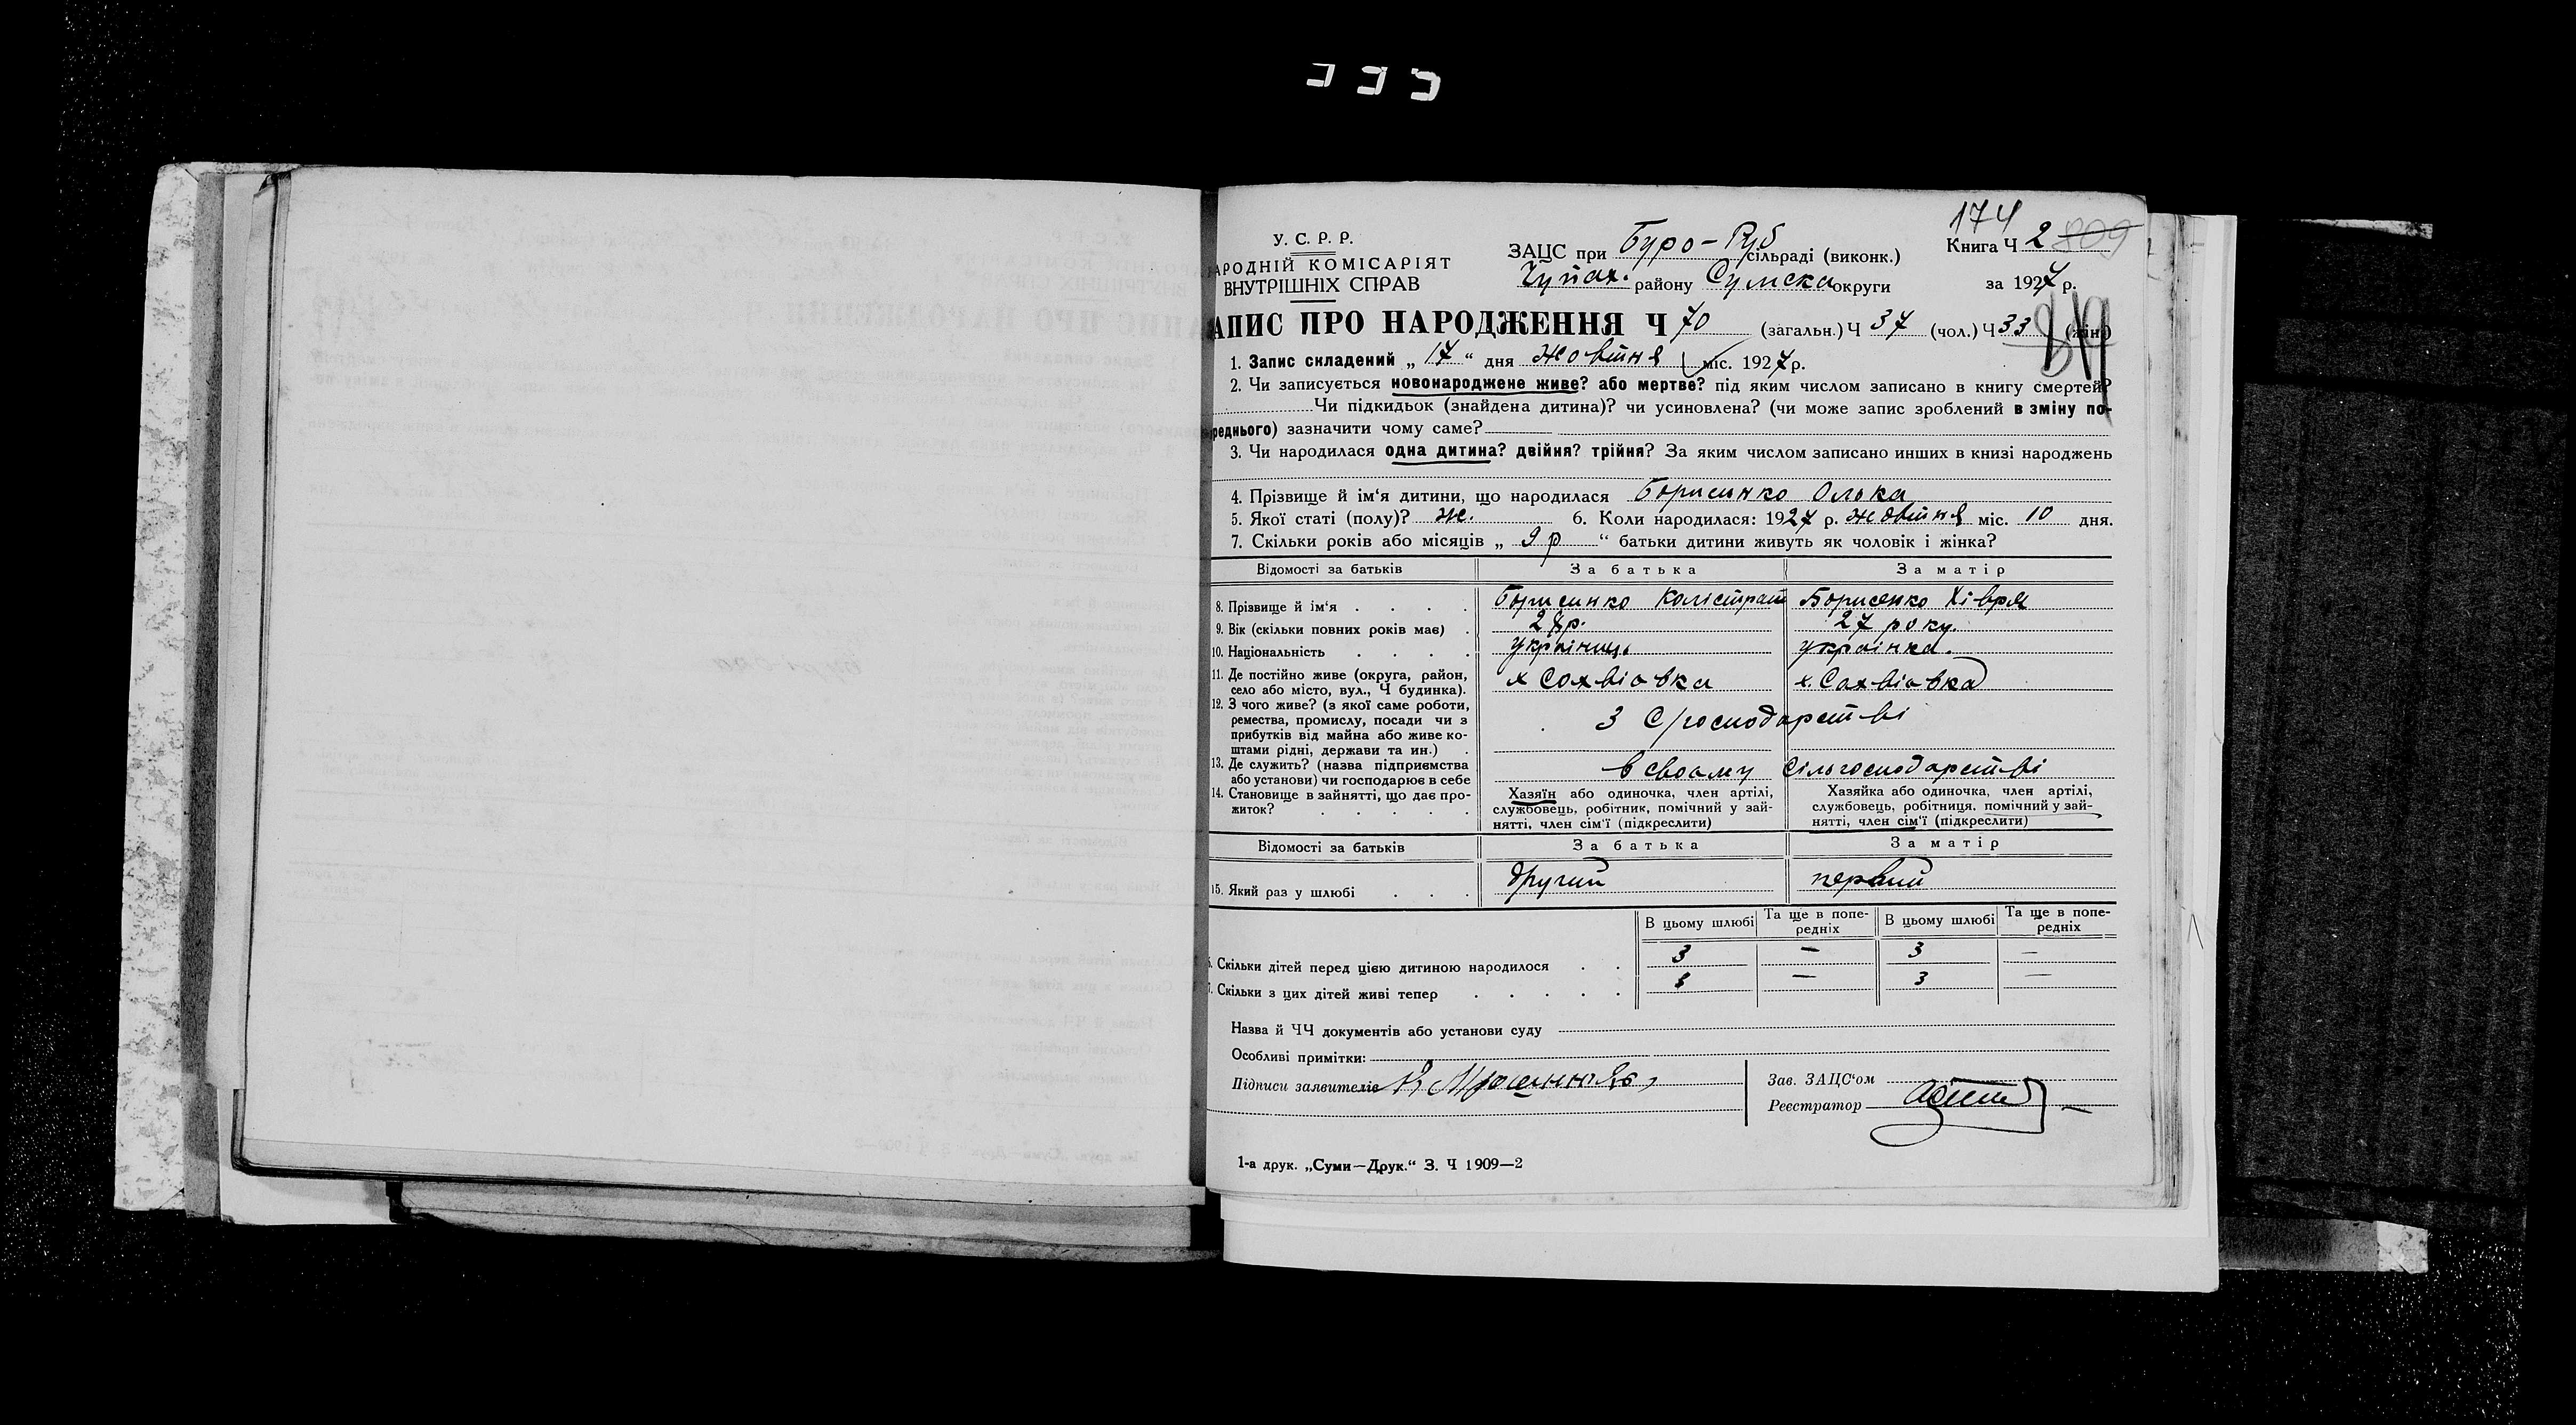 174
У. С. Р. Р.
НАРОДНІЙ КОМІСАРІЯТ
ВНУТРІШНІХ СПРАВ
ЗАЦС при Буро-Руб сільраді (виконк.)
Чупах. району Сумска округи
Книга Ч 2 809
за 1927 р.
ЗАПИС ПРО НАРОДЖЕННЯ Ч 70 (загальн.) Ч 37 (чол.) Ч 33 (жін)
1. Запис складений „ 17 “ дня жовтня міс. 1927 р.
2. Чи записується новонароджене живе? або мертве? під яким числом записано в книгу смертей?
Чи підкидьок (знайдена дитина)? чи усиновлена? (чи може запис зроблений в зміну по-
реднього) зазначити чому саме?
3. Чи народилася одна дитина? двійня? трійня? За яким числом записано инших в книзі народжень
4. Прізвище й ім‘я дитини, що народилася Борисенко Олька
5. Якої статі (полу)? ж. 6. Коли народилася: 1927 р. жовтня міс. 10 дня.
7. Скільки років або місяців „ 9 р “ батьки дитини живуть як чоловік і жінка?
Відомості за батьків За батька За матір
8. Прізвище й ім‘я . . . . Борисенко Калістрат Борисенко Хівря
9. Вік (скільки повних років має) . 27р. 27 року.
10. Національність . . . . українець українка.
11. Де постійно живе (округа, район,
село або місто, вул., Ч будинка). х Сохвіовка х. Сахвіовка
12. З чого живе? (з якої саме роботи,
ремества, промислу, посади чи з
прибутків від майна або живе ко-
штами рідні, держави та ин.) .
З С/господарстві
13. Де служить? (назва підприємства
або установи) чи господарює в себе
в своаму сільгосподарстві
14. Становище в зайнятті, що дає про-
житок? . . . . .
Хазяїн або одиночка, член артілі,
службовець, робітник, помічний у зай-
нятті, член сім‘ї (підкреслити)
Хазяйка або одиночка, член артілі,
службовець, робітниця, помічний у зай-
нятті, член сім‘ї (підкреслити)
Відомості за батьків За батька За матір
15. Який раз у шлюбі . . . другий первий
В цьому шлюбі Та ще в попе-редніх В цьому шлюбі Та ще в попе-редніх
Скільки дітей перед цією дитиною народилося . . 3 — 3 —
Скільки з цих дітей живі тепер . . . . . 3 — 3 —
Назва й ЧЧ документів або установи суду
Особливі примітки:
Підписи заявителів
Зав. ЗАЦС‘ом
Реєстратор
1-а друк. „Суми—Друк.“ З. Ч 1909—2